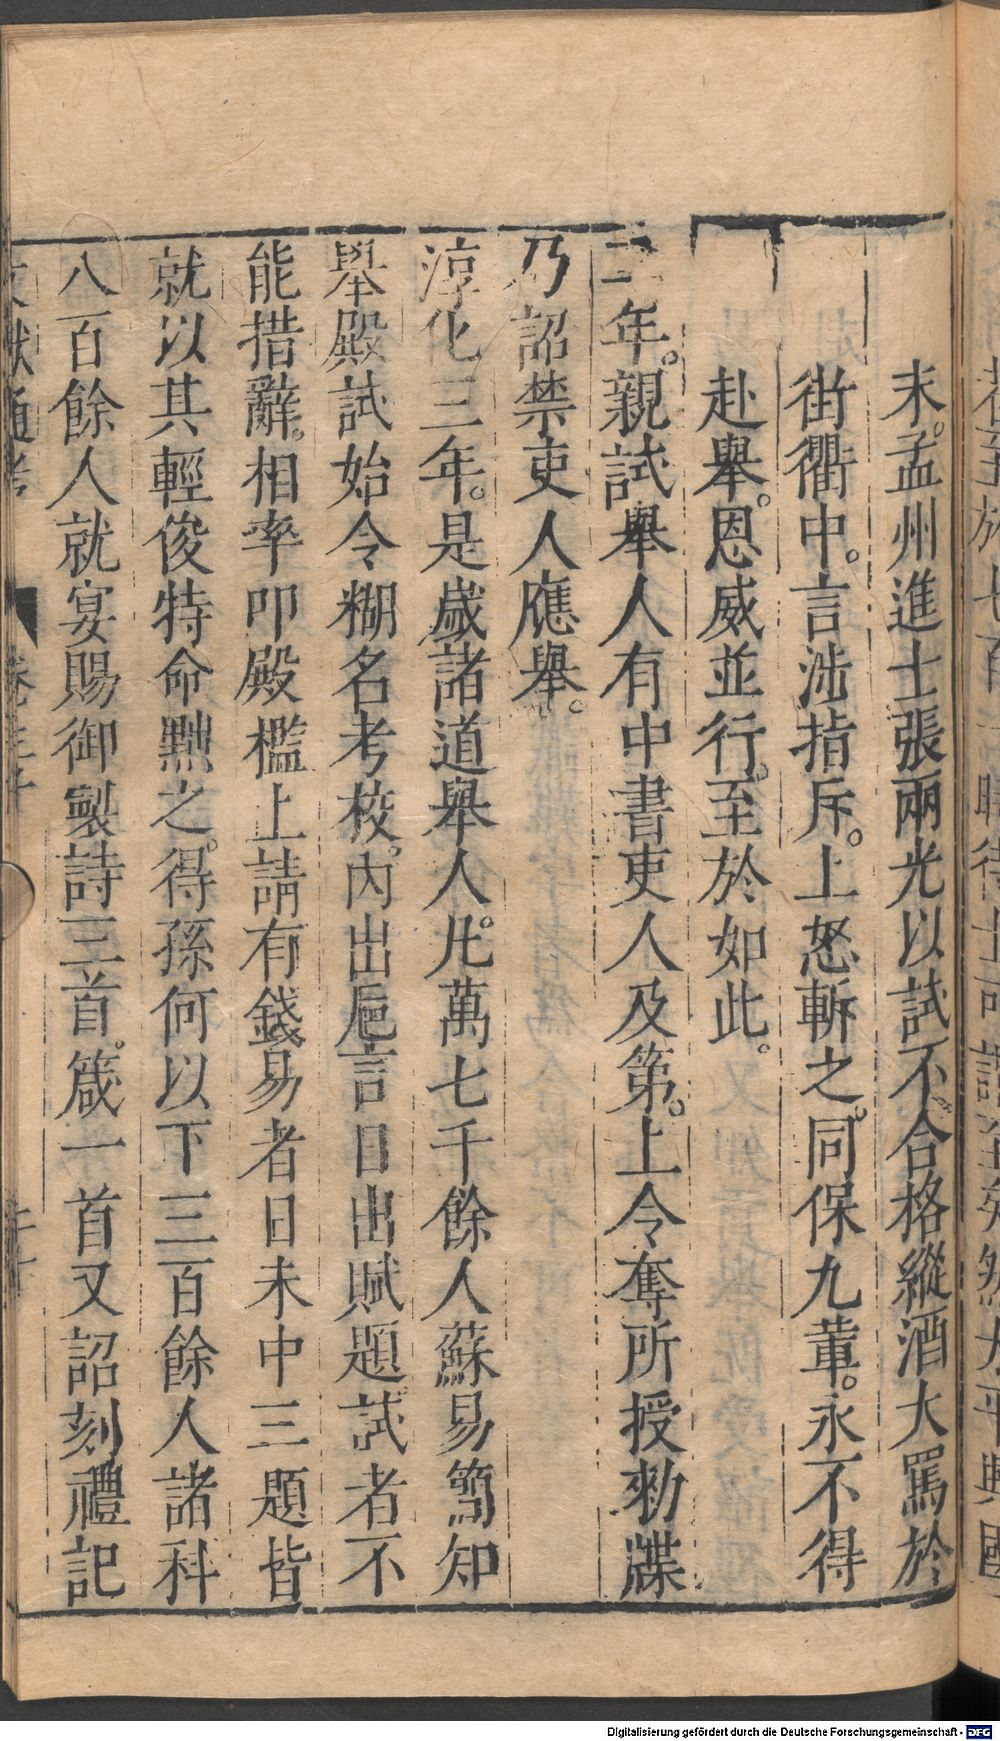 末。孟州進士張兩光以試不合格縱酒大罵於
街衢中。言涉指斥。上怒斬之。同保九軰。永不得
赴舉。恩威並行。至於如此。
二年。親試舉人有中書吏人及第。上令奪所授勑牒
乃詔禁吏人應舉。
淳化三年。是歲諸道舉人。凡萬七千餘人蘇易簡知
舉殿試始令糊名考校。內出巵言日出賦題。試者不
能措辭。相率叩殿檻上請有錢易者日未中三題皆
就以其輕俊特命黜之。得孫何以下三百餘人諸科
八百餘人就宴賜御製詩三首。箴一首又詔刻禮記
文獻通考
Digitalisierung gefördert durch die Deutsche Forschungsgemeinschaft - DFG